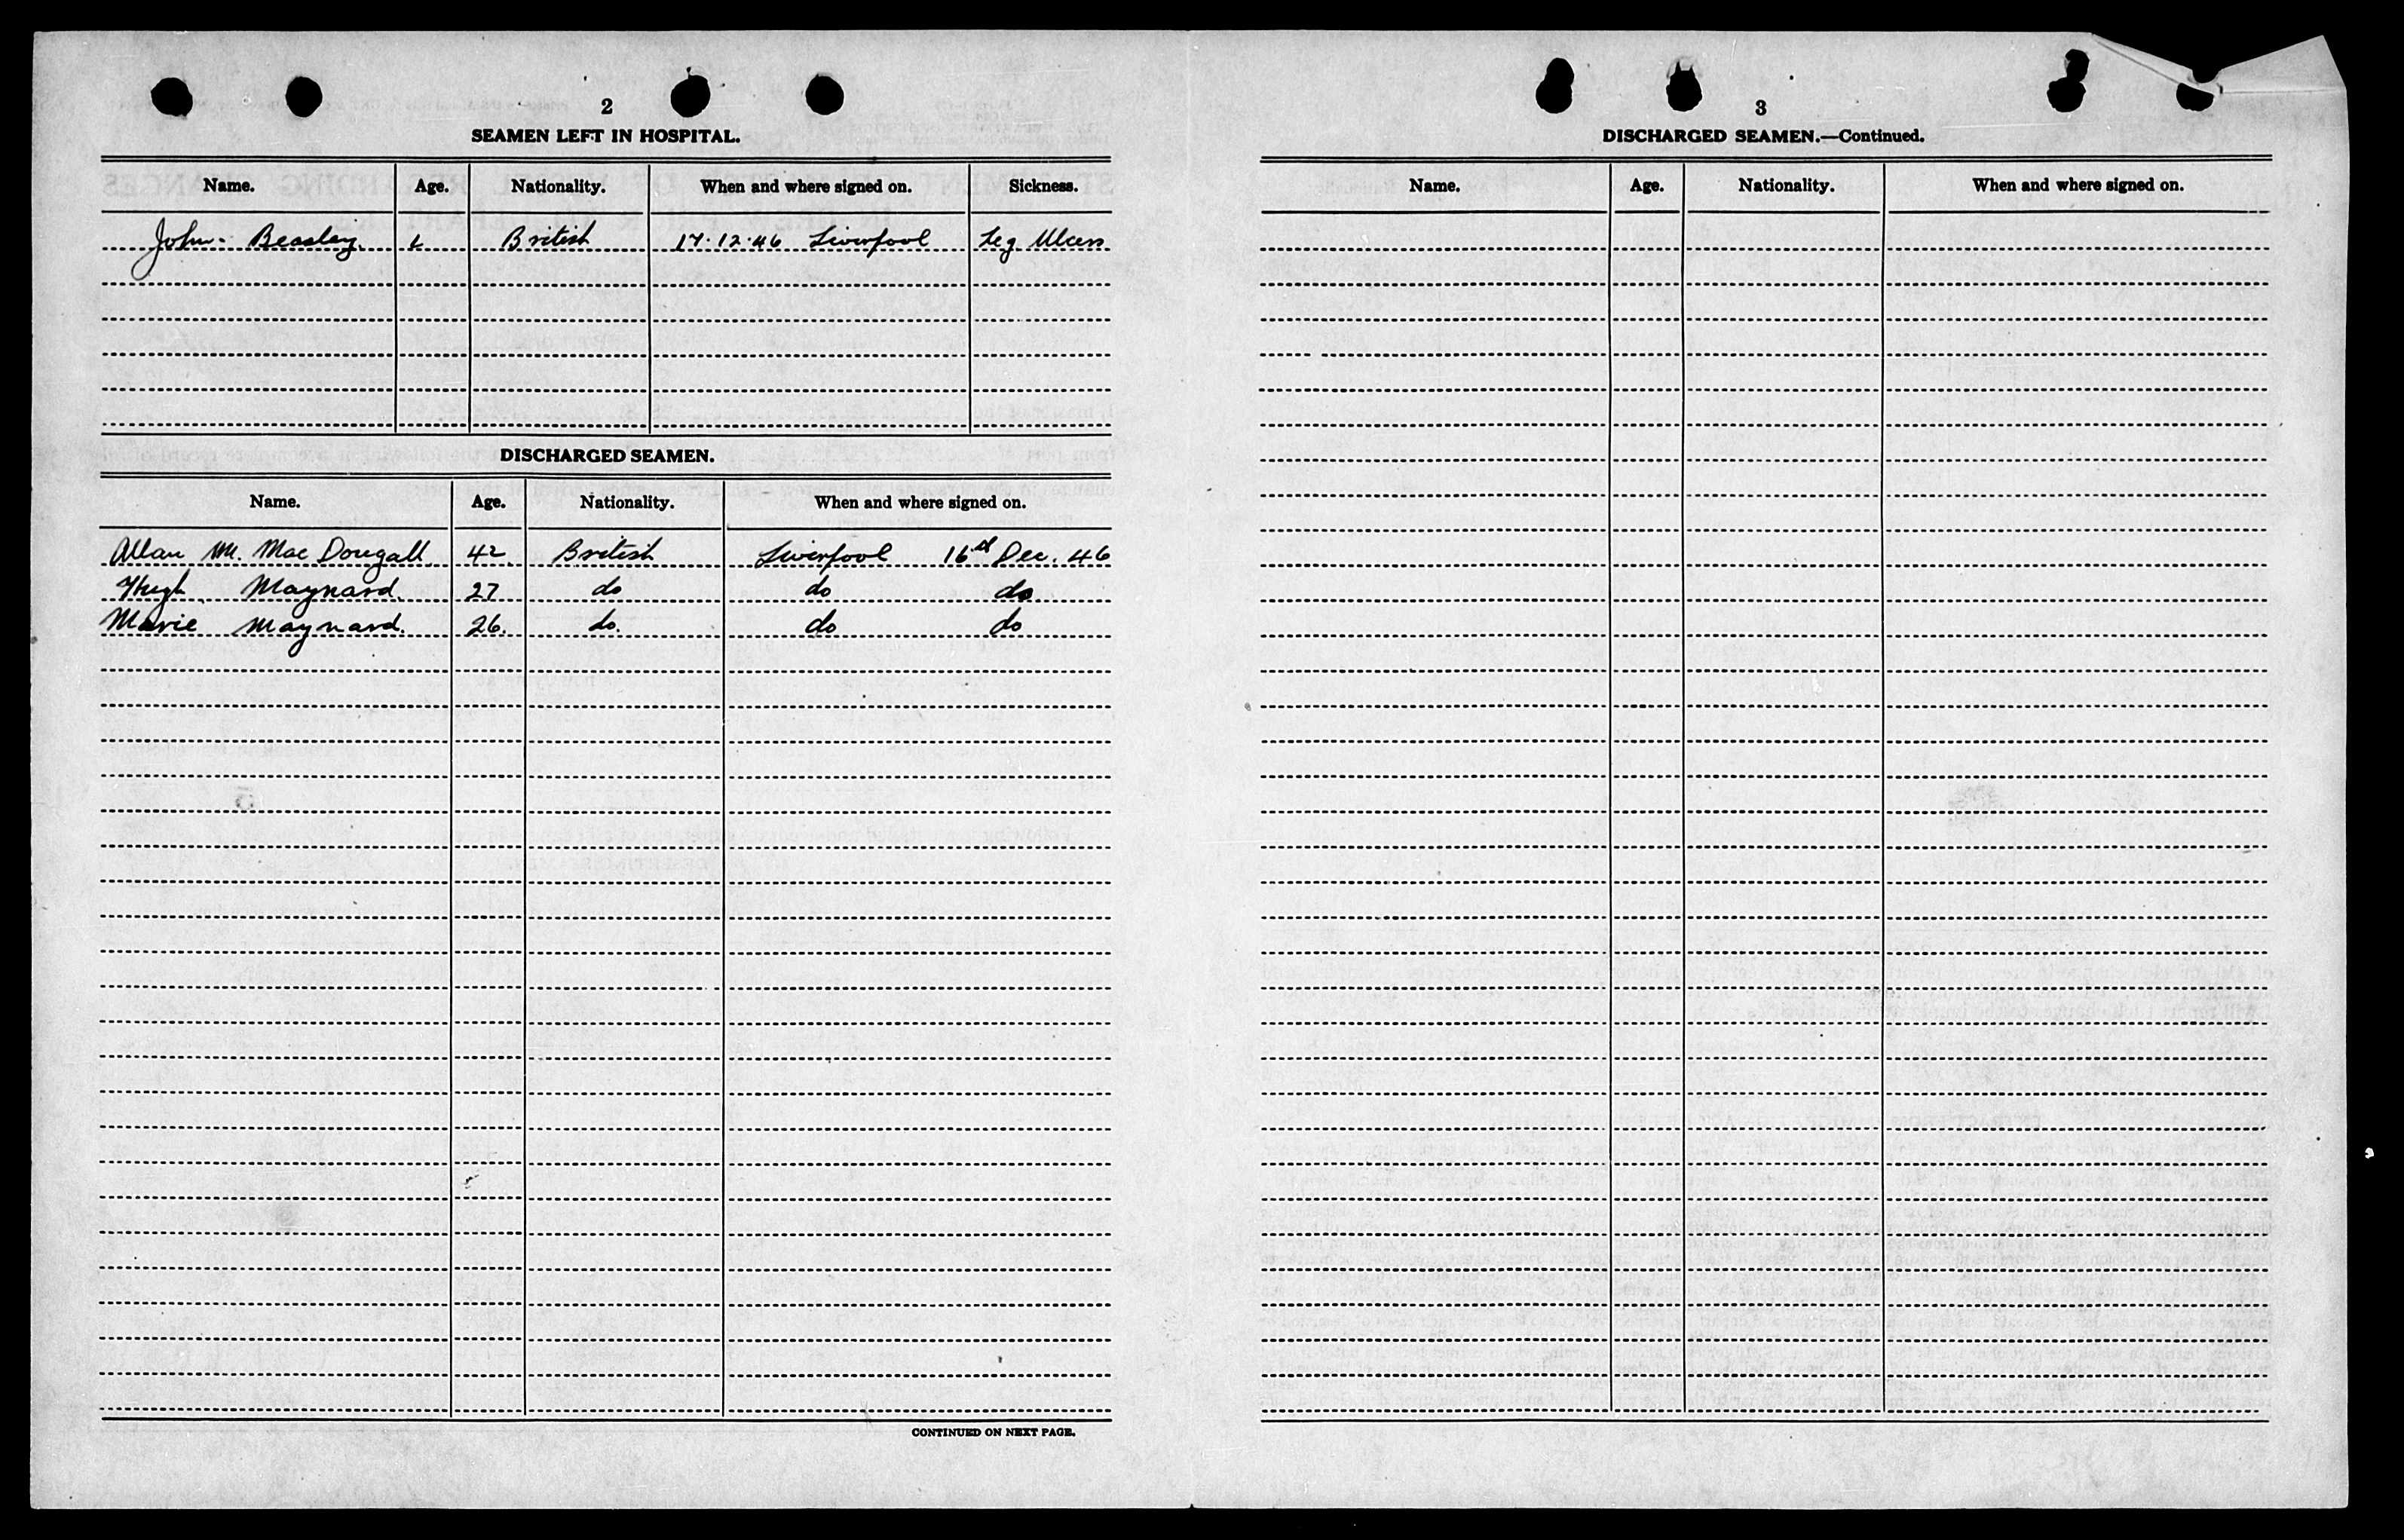 2
SEAMEN LEFT IN HOSPITAL.
Name. Age. Nationality. When and where signed on. Sickness.
John Beasley British 17.12.46 Liverpool Leg Ulcers
DISCHARGED SEAMEN.
Name. Age. Nationality. When and where signed on.
Allan M. Mac Dougall 42 British Liverpool 16th Dec. 46
Hugh Maynard 27 do do do
Marie Maynard. 26. do. do do
CONTINUED ON NEXT PAGE.
3
DISCHARGED SEAMEN.—Continued.
Name. Age. Nationality. When and where signed on.